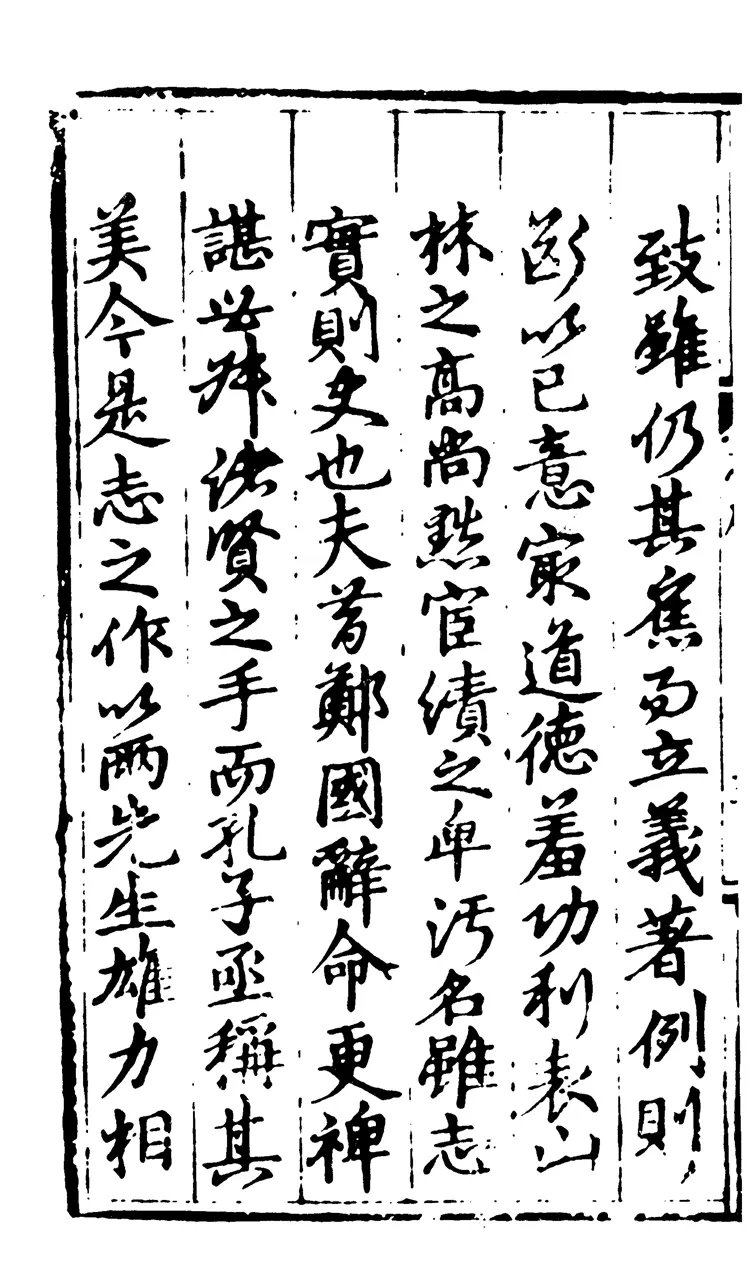 致雖仍其舊而立義著例則
斷以己意冣道德羞功利表山
林之高尚黜宦績之卑汚名雖志
實則史也夫昔鄭國辭命更裨
諶世叔諸賢之手而孔子亟稱其
美今是志之作以兩先生雄力相